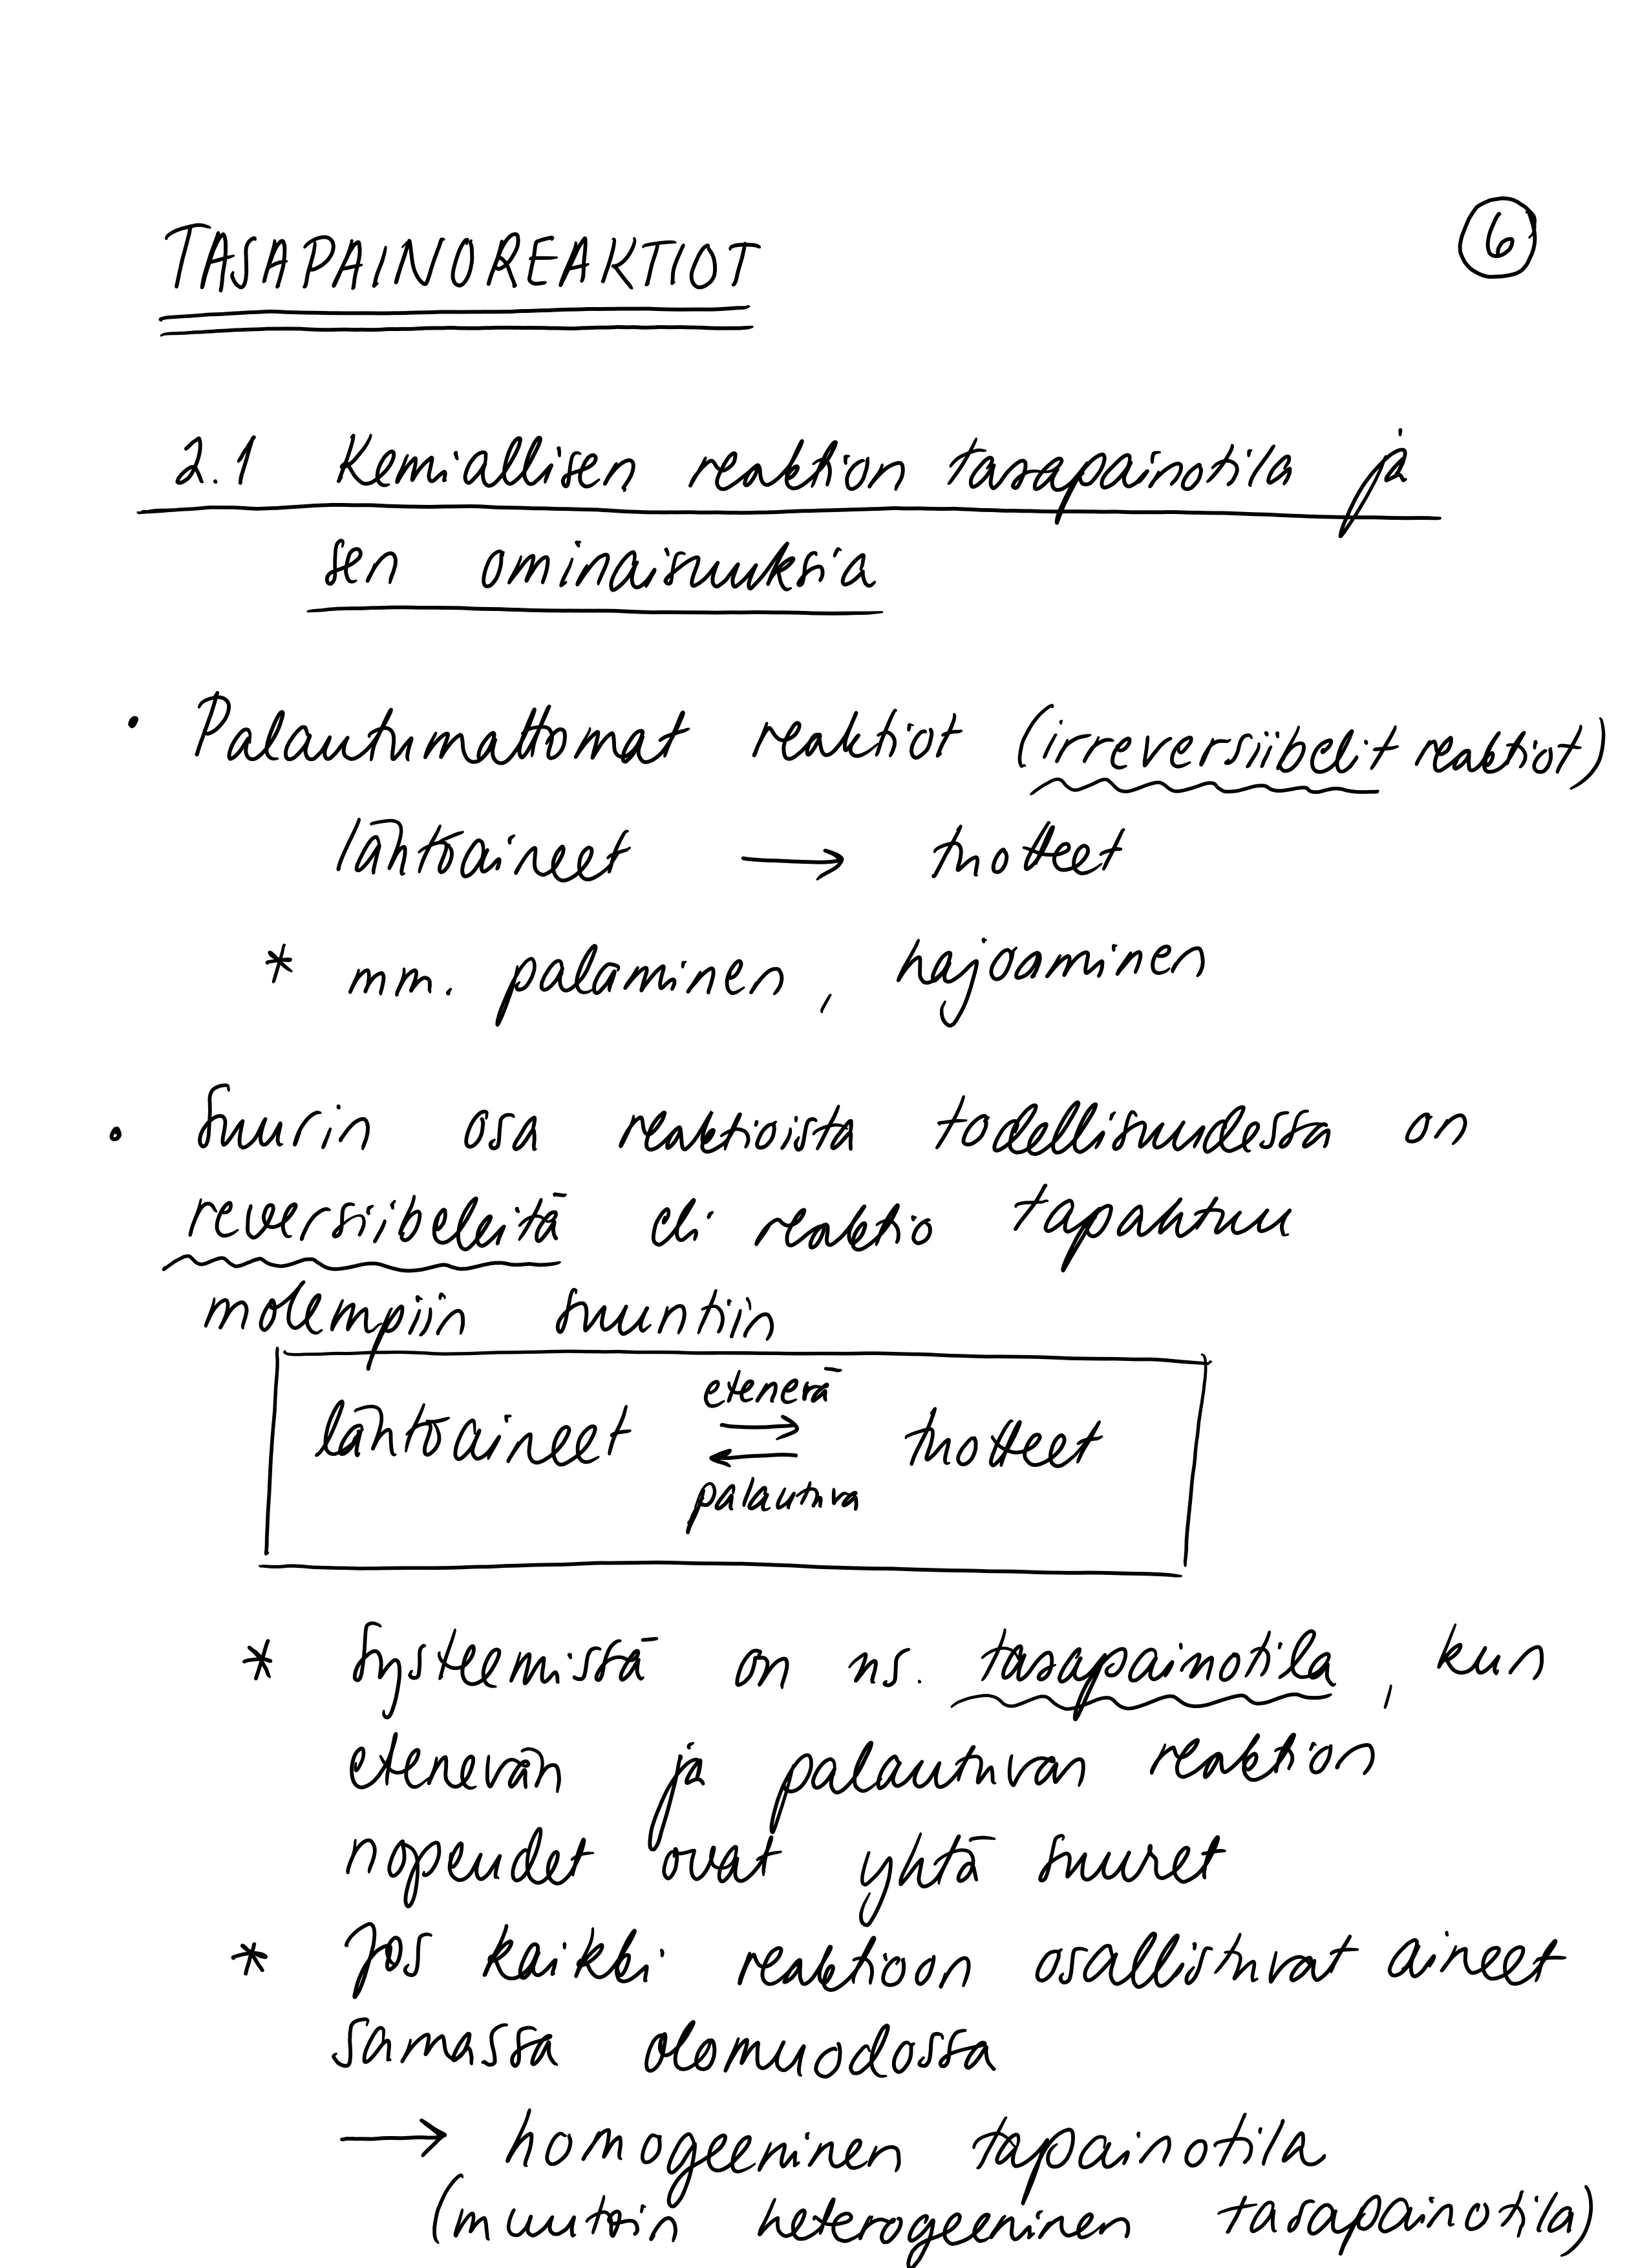 TASAPAINOREAKTIOT
6
2.1 Kemiallisen reaktion tasapainotila ja
sen ominaisuuksia
• Palautumattomat reaktiot (irreversiibelit reaktiot)
lähtöaineet → tuotteet
* mm. palaminen, hajoaminen
• Suurin osa reaktioista todellisuudessa on
reversiibeleitä eli reaktio tapahtuu
molempiin suuntiin
etenevä
lähtöaineet ⇄ tuotteet
palautuva
* Systeemissä on ns. tasapainotila, kun
etenevän ja palautuvan reaktion
nopeudet ovat yhtä suuret
* Jos kaikki reaktioon osallistuvat aineet
samassa olomuodossa
→ homogeeninen tapainotila
(muutoin heterogeeninen tasapainotila)